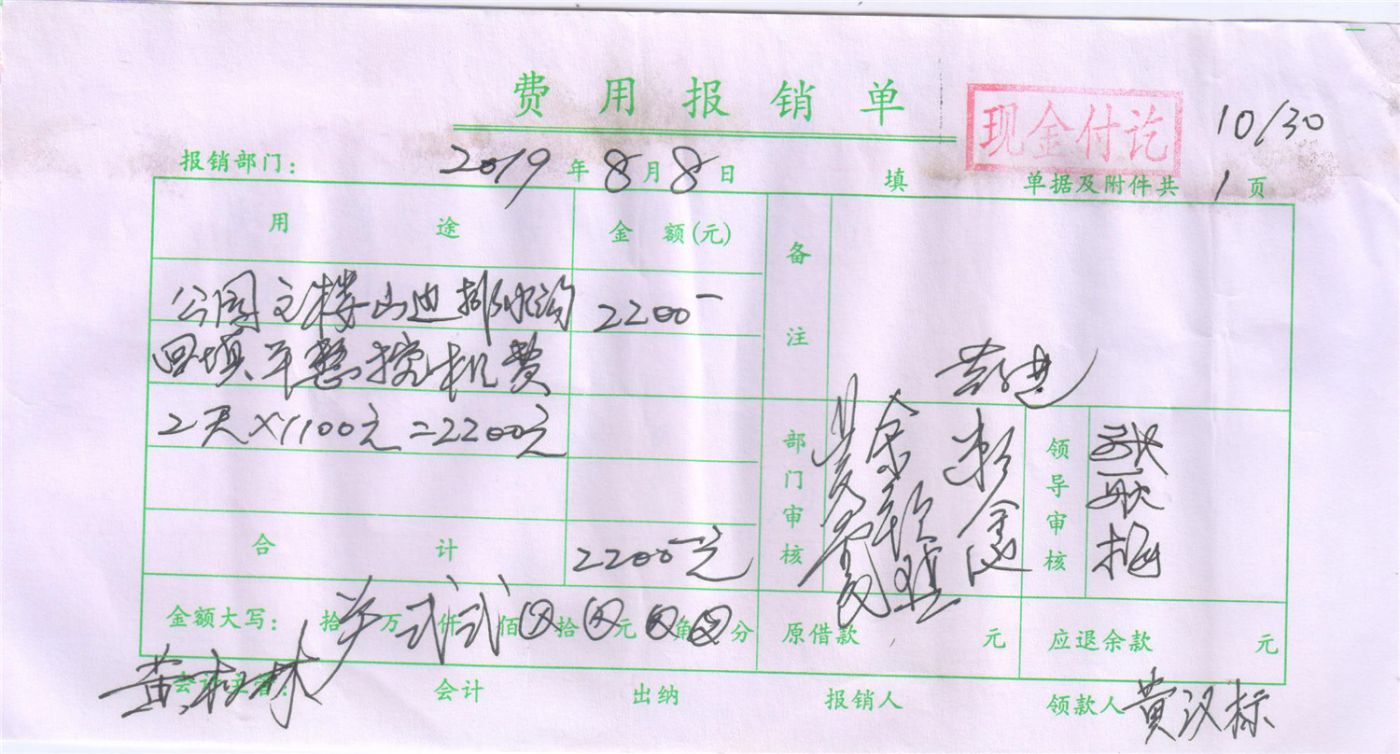 费用报销单
现金付讫
10/30
报销部门： 2019年8月8日 填 单据及附件共1页
用途 金额(元) 备注
公园文楼山边排水沟 2200-
回填平整挖机费
2天×1100元=2200元
部门审核 领导审核
合计 2200-元
金额大写： 拾 万 仟 佰 拾 元 角 分 原借款 元 应退余款 元
会计主管： 会计 出纳 报销人 领款人 黄汉标